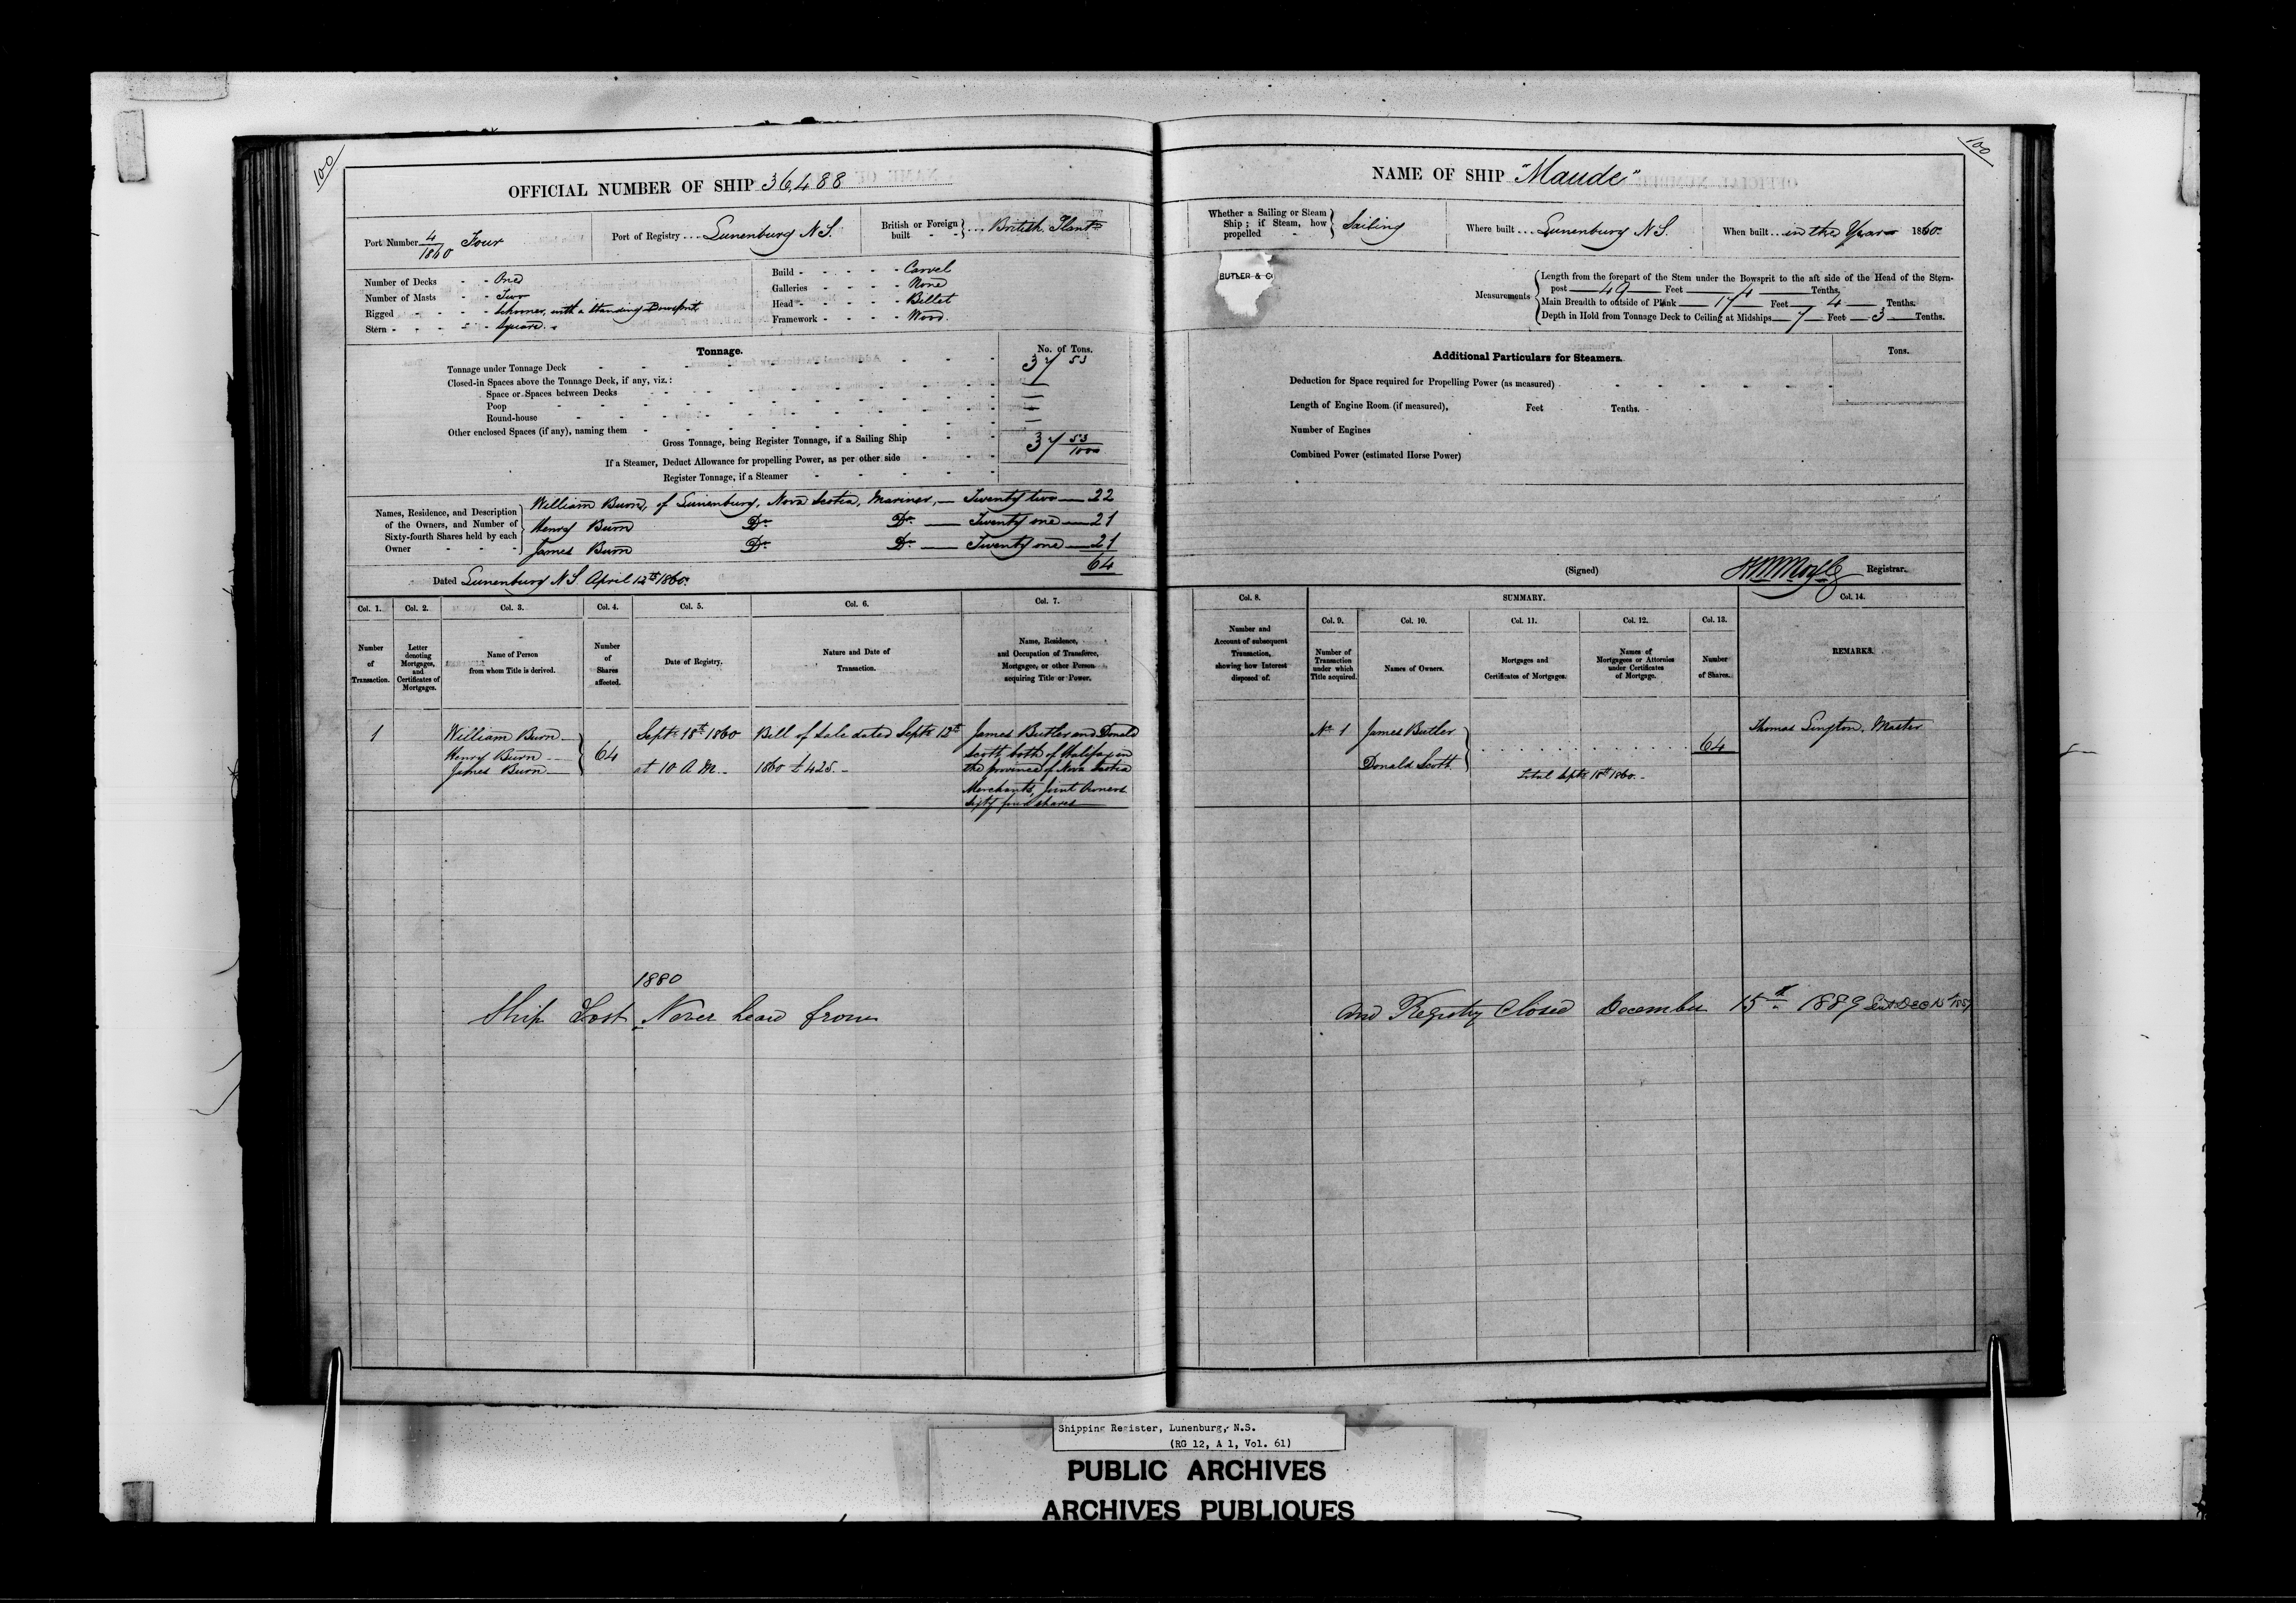 100
OFFICIAL NUMBER OF SHIP 36,488
Port Number 4/1860 Four
Port of Registry Lunenburg N S.
British or Foreign built British Plant
Number of Decks - - One
Number of Masts - - Two
Rigged - - - - Schooner, with a standing Bowsprit
Stern - - - - Square
Build - - - - - Carvel
Galleries - - - - None
Head - - - - - Billet
Framework - - - - Wood
Tonnage.
No. of Tons.
Tonnage under Tonnage Deck 37 53
Closed-in Spaces above the Tonnage Deck, if any, viz.:
Space or Spaces between Decks
Poop
Round-house
Other enclosed Spaces (if any), naming them
Gross Tonnage, being Register Tonnage, if a Sailing Ship 37 53/1000
If a Steamer, Deduct Allowance for propelling Power, as per other side
Register Tonnage, if a Steamer
Names, Residence, and Description of the Owners, and Number of Sixty-fourth Shares held by each Owner
William Burn, of Lunenburg, Nova Scotia, Mariner, — Twenty two — 22
Henry Burn Do Do — Twenty one — 21
James Burn Do Do — Twenty one — 21
64
Dated Lunenburg N S. April 12th 1860.
Col. 1. Col. 2. Col. 3. Col. 4. Col. 5. Col. 6. Col. 7.
Number of Transaction.
Letter denoting Mortgages, and Certificates of Mortgages.
Name of Person from whom Title is derived.
Number of Shares affected.
Date of Registry.
Nature and Date of Transaction.
Name, Residence, and Occupation of Transferee, Mortgagee, or other Person acquiring Title or Power.
1
William Burn
Henry Burn
James Burn
64
Sept 18th 1860
at 10 A M.
Bill of Sale dated Sept 12th
1860 £425.
James Butler and Donald
Scott both of Halifax in
the province of Nova Scotia
Merchants, Joint Owners
Sixty four shares
1880
Ship Lost Never heard from
100
NAME OF SHIP "Maude"
Whether a Sailing or Steam Ship; if Steam, how propelled Sailing
Where built Lunenburg N S.
When built in the Year 1860.
BUTLER & CO
Measurements
Length from the forepart of the Stem under the Bowsprit to the aft side of the Head of the Stern-
post — 49 — Feet — 4 — Tenths.
Main Breadth to outside of Plank — 17 — Feet — 4 — Tenths.
Depth in Hold from Tonnage Deck to Ceiling at Midships — 7 — Feet — 3 — Tenths.
Additional Particulars for Steamers.
Tons.
Deduction for Space required for Propelling Power (as measured)
Length of Engine Room (if measured), Feet Tenths.
Number of Engines
Combined Power (estimated Horse Power)
(Signed) Registrar.
Col. 8. SUMMARY. Col. 14.
Col. 9. Col. 10. Col. 11. Col. 12. Col. 13.
Number and Account of subsequent Transaction, showing how Interest disposed of.
Number of Transaction under which Title acquired.
Names of Owners.
Mortgages and Certificates of Mortgages.
Names of Mortgagees or Attornies under Certificates of Mortgage.
Number of Shares.
REMARKS.
No 1
James Butler
Donald Scott
64
Total Sept 18th 1860.
Thomas Master
and Registry Closed December 15th 1889
Shipping Register, Lunenburg, N.S.
(RG 12, A 1, Vol. 61)
PUBLIC ARCHIVES
ARCHIVES PUBLIQUES